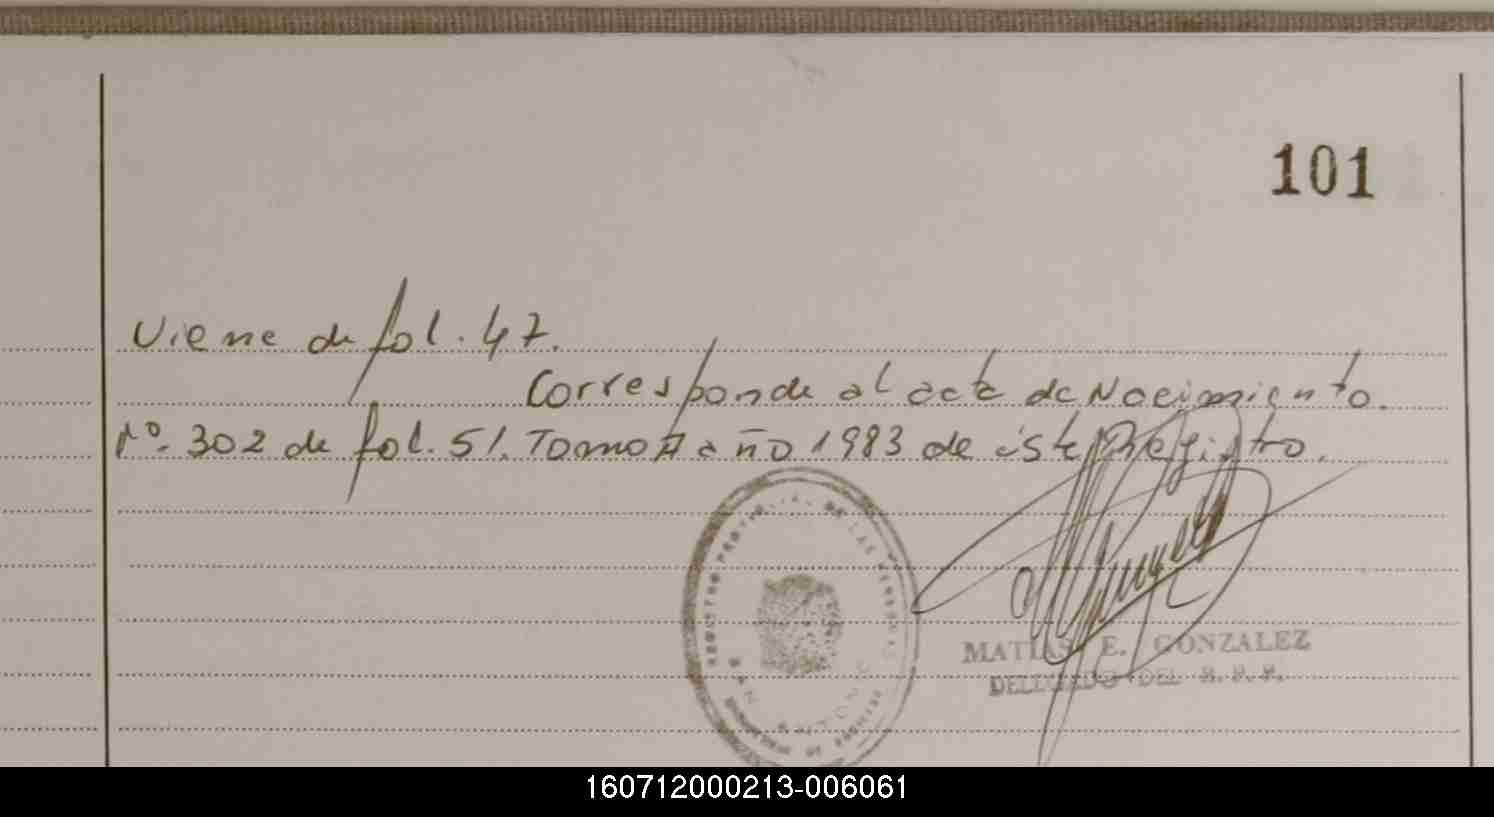 101
Viene de fol. 47.
Corresponde al acta de Nacimiento.
Nº. 302 de fol. 51. Tomo A año 1983 de éste Registro.
DE LAS PERSONAS
SAN ANTONIO
MATIAS E. GONZALEZ
DELEGADO DEL R. P. P.
160712000213-006061